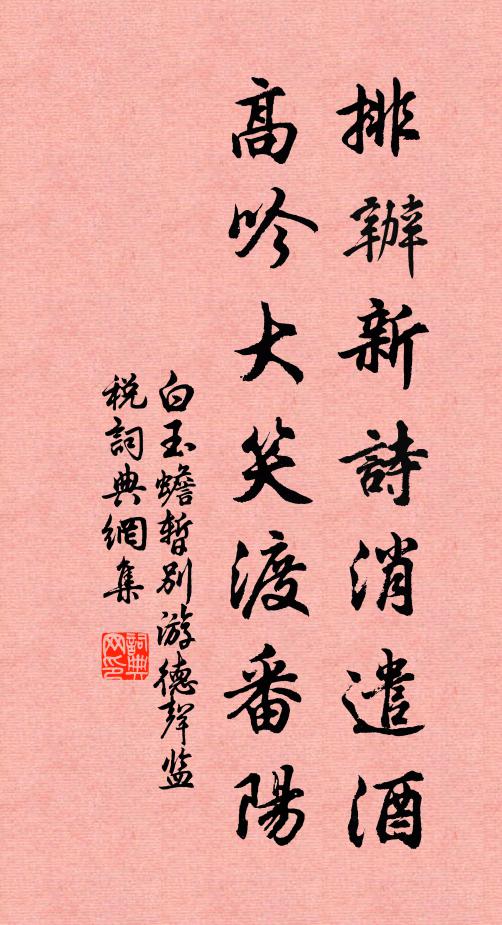 排辦新詩消遣酒
高吟大笑渡番陽
白玉蟾暫別游德聲监
税詞典網集
詞典网印